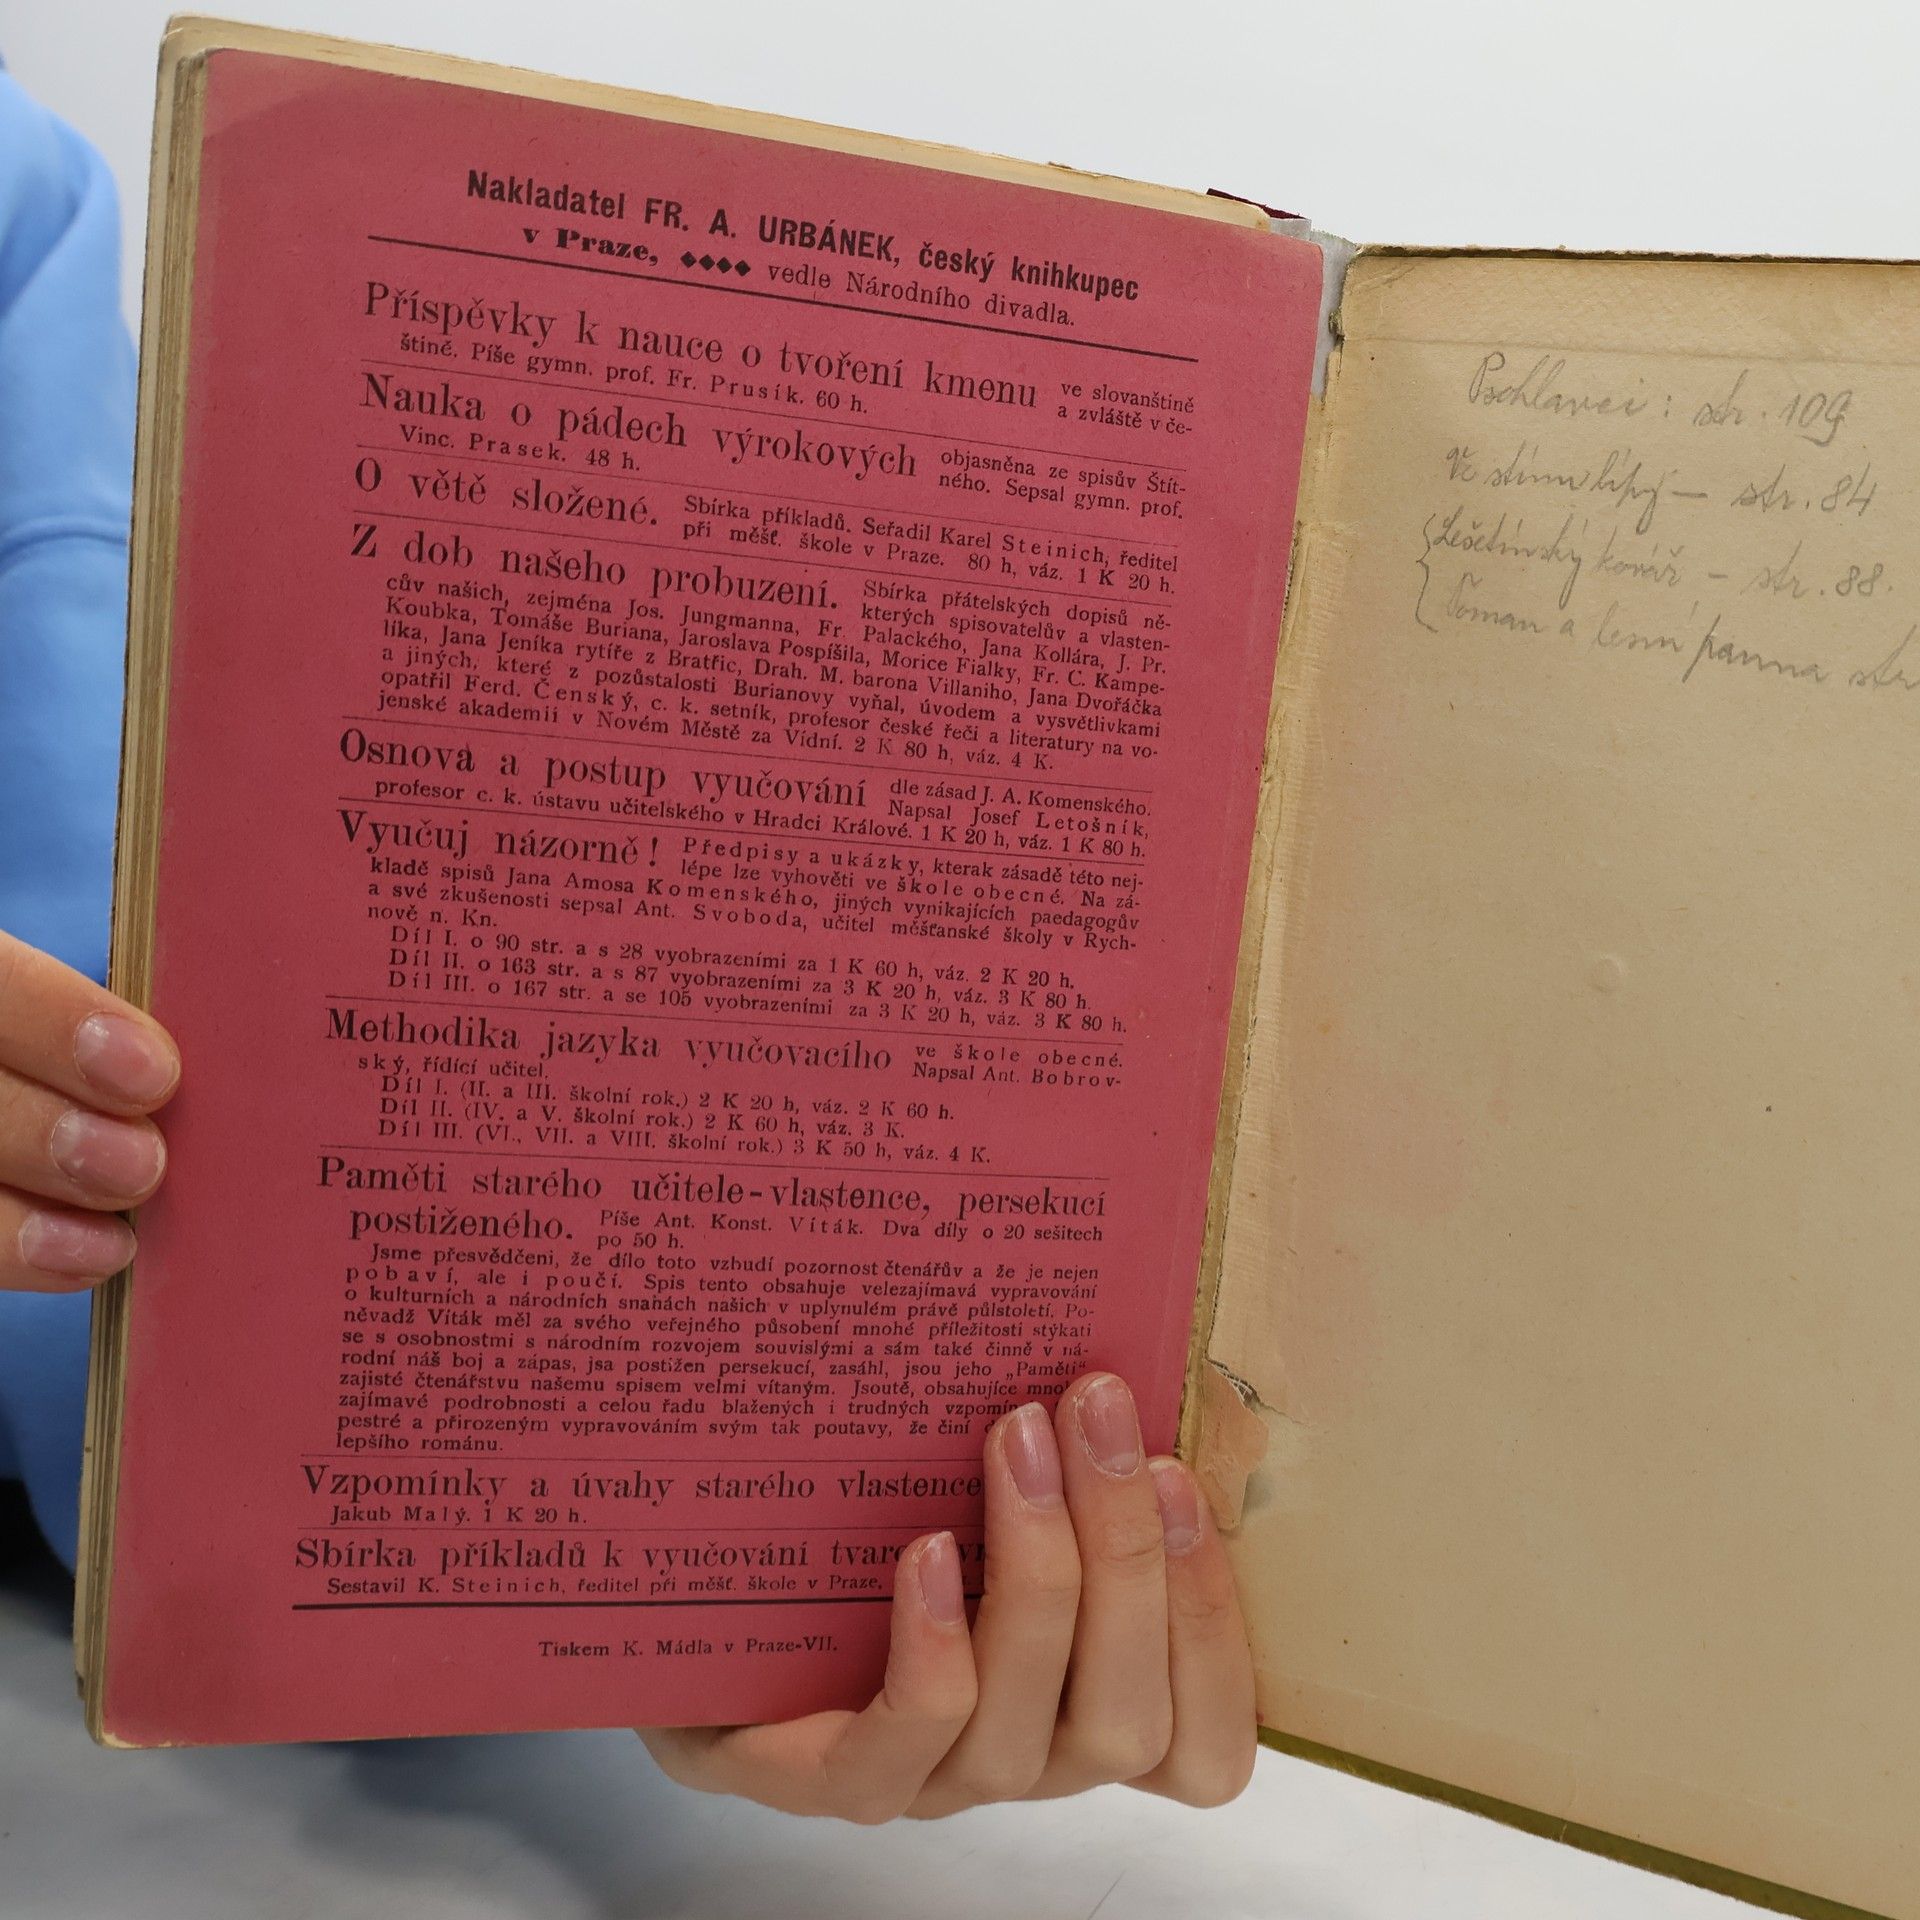 Nakladatel FR. A. URBÁNEK, český knihkupec
v Praze, ◆◆◆◆ vedle Národního divadla.
Příspěvky k nauce o tvoření kmenu ve slovanštině
a zvláště v če-
štině. Píše gymn. prof. Fr. Prusík. 60 h.
Nauka o pádech výrokových objasněna ze spisův Štít-
ného. Sepsal gymn. prof.
Vinc. Prasek. 48 h.
O větě složené. Sbírka příkladů. Seřadil Karel Steinich, ředitel
při měšť. škole v Praze. 80 h, váz. 1 K 20 h.
Z dob našeho probuzení. Sbírka přátelských dopisů ně-
kterých spisovatelův a vlasten-
cův našich, zejména Jos. Jungmanna, Fr. Palackého, Jana Kollára, J. Pr.
Koubka, Tomáše Buriana, Jaroslava Pospíšila, Morice Fialky, Fr. C. Kampe-
líka, Jana Jeníka rytíře z Bratřic, Drah. M. barona Villaniho, Jana Dvořáčka
a jiných, které z pozůstalosti Burianovy vyňal, úvodem a vysvětlivkami
opatřil Ferd. Čenský, c. k. setník, profesor české řeči a literatury na vo-
jenské akademii v Novém Městě za Vídní. 2 K 80 h, váz. 4 K.
Osnova a postup vyučování dle zásad J. A. Komenského.
Napsal Josef Letošník,
profesor c. k. ústavu učitelského v Hradci Králové. 1 K 20 h, váz. 1 K 80 h.
Vyučuj názorně! Předpisy a ukázky, kterak zásadě této nej-
lépe lze vyhověti ve škole obecné. Na zá-
kladě spisů Jana Amosa Komenského, jiných vynikajících paedagogův
a své zkušenosti sepsal Ant. Svoboda, učitel měšťanské školy v Rych-
nově n. Kn.
Díl I. o 90 str. a s 28 vyobrazeními za 1 K 60 h, váz. 2 K 20 h.
Díl II. o 163 str. a s 87 vyobrazeními za 3 K 20 h, váz. 3 K 80 h.
Díl III. o 167 str. a se 105 vyobrazeními za 3 K 20 h, váz. 3 K 80 h.
Methodika jazyka vyučovacího ve škole obecné.
Napsal Ant. Bobrov-
ský, řídící učitel.
Díl I. (II. a III. školní rok.) 2 K 20 h, váz. 2 K 60 h.
Díl II. (IV. a V. školní rok.) 2 K 60 h, váz. 3 K.
Díl III. (VI., VII. a VIII. školní rok.) 3 K 50 h, váz. 4 K.
Paměti starého učitele-vlastence, persekucí
postiženého. Píše Ant. Konst. Víták. Dva díly o 20 sešitech
po 50 h.
Jsme přesvědčeni, že dílo toto vzbudí pozornost čtenářův a že je nejen
pobaví, ale i poučí. Spis tento obsahuje velezajímavá vypravování
o kulturních a národních snahách našich v uplynulém právě půlstoletí. Po-
něvadž Víták měl za svého veřejného působení mnohé příležitosti stýkati
se s osobnostmi s národním rozvojem souvislými a sám také činně v ná-
rodní náš boj a zápas, jsa postižen persekucí, zasáhl, jsou jeho „Paměti“
zajisté čtenářstvu našemu spisem velmi vítaným. Jsoutě, obsahujíce
zajímavé podrobnosti a celou řadu blažených i trudných
pestré a přirozeným vypravováním svým tak poutavy, že činí
lepšího románu.
Vzpomínky a úvahy starého vlastence
Jakub Malý. 1 K 20 h.
Sbírka příkladů k vyučování
Sestavil K. Steinich, ředitel při měšť. škole v Praze.
Tiskem K. Mádla v Praze-VII.
Psohlavci: str. 109
Ve stínu lípy — str. 84
Lešetínský kovář — str. 88.
Toman a lesní panna str